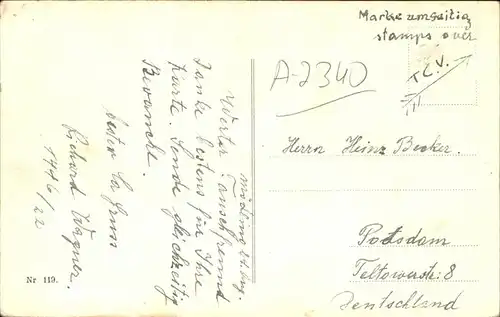 Marke umseitig
stamps over
T.C.V.
A-2340
Mödling 24. Aug.
Werter Tauschfreund
Danke bestens für Ihre
Karte. Sende gleichzeitig
Revanche.
besten Sa. Gruss
Richard Wagner
1446/22
Herrn Heinz Becker.
Potsdam
Teltowerstr: 8
Deutschland
Nr 119.